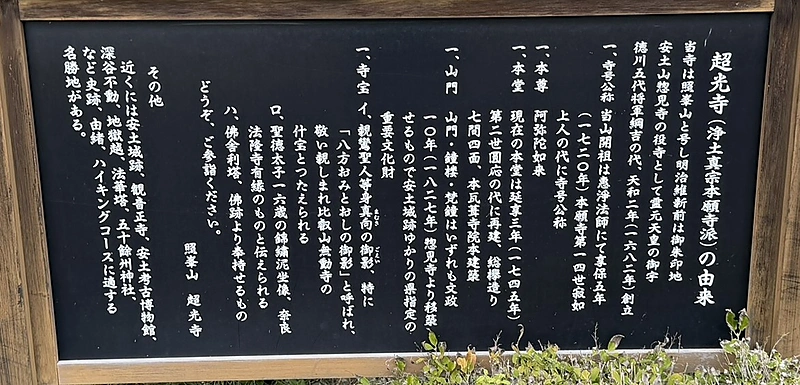 超光寺（浄土真宗本願寺派）の由来
当寺は照峯山と号し明治維新前は御朱印地
安土山惣見寺の役寺として霊元天皇の御宇
徳川五代将軍綱吉の代、天和二年（一六八二年）創立
一、寺号公称 当山開祖は惠浄法師にて享保五年
（一七二〇年）本願寺第一四世寂如
上人の代に寺号公称
一、本尊 阿弥陀如来
一、本堂 現在の本堂は延享三年（一七四五年）
第二世圓応の代に再建、総欅造り
七間四面、本瓦葺寺院本建築
一、山門 山門・鐘楼・梵鐘はいずれも文政
一〇年（一八二七年）惣見寺より移築
せるもので安土城跡ゆかりの県指定の
重要文化財
一、寺宝 イ、親鸞聖人等身真向の御影、特に
むき ごえい
「八方おみとおしの御影」と呼ばれ、
敬い親しまれ比叡山無動寺の
什宝とつたえられる
ロ、聖徳太子一六歳の錦繍泥坐像、奈良
法隆寺有縁のものと伝えられる
ハ、佛舎利塔、佛跡より奉持せるもの
どうぞ、ご参詣ください。
照峯山 超光寺
その他
近くには安土城跡、観音正寺、安土考古博物館、
深谷不動、地獄越、法華塔、五十餘州神社、
など史跡、由緒、ハイキングコースに適する
名勝地がある。